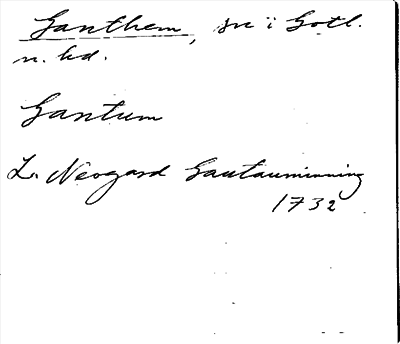 Ganthem, sn i Gotl.
n. hd.
Gantum
L. Neogard Gautauminning
1732